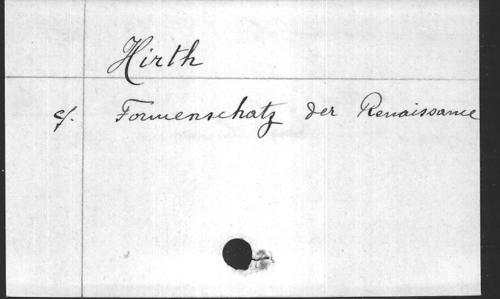 Hirth
cf. Formenschatz der Renaissance